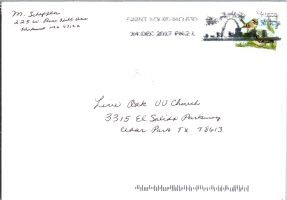 M. Schaefer
225 W.
SAINT LOUIS MO 630
04 DEC 2017 PM 2 L
Live Oak UU Church
3315 El Salido Parkway
Cedar Park TX 78613